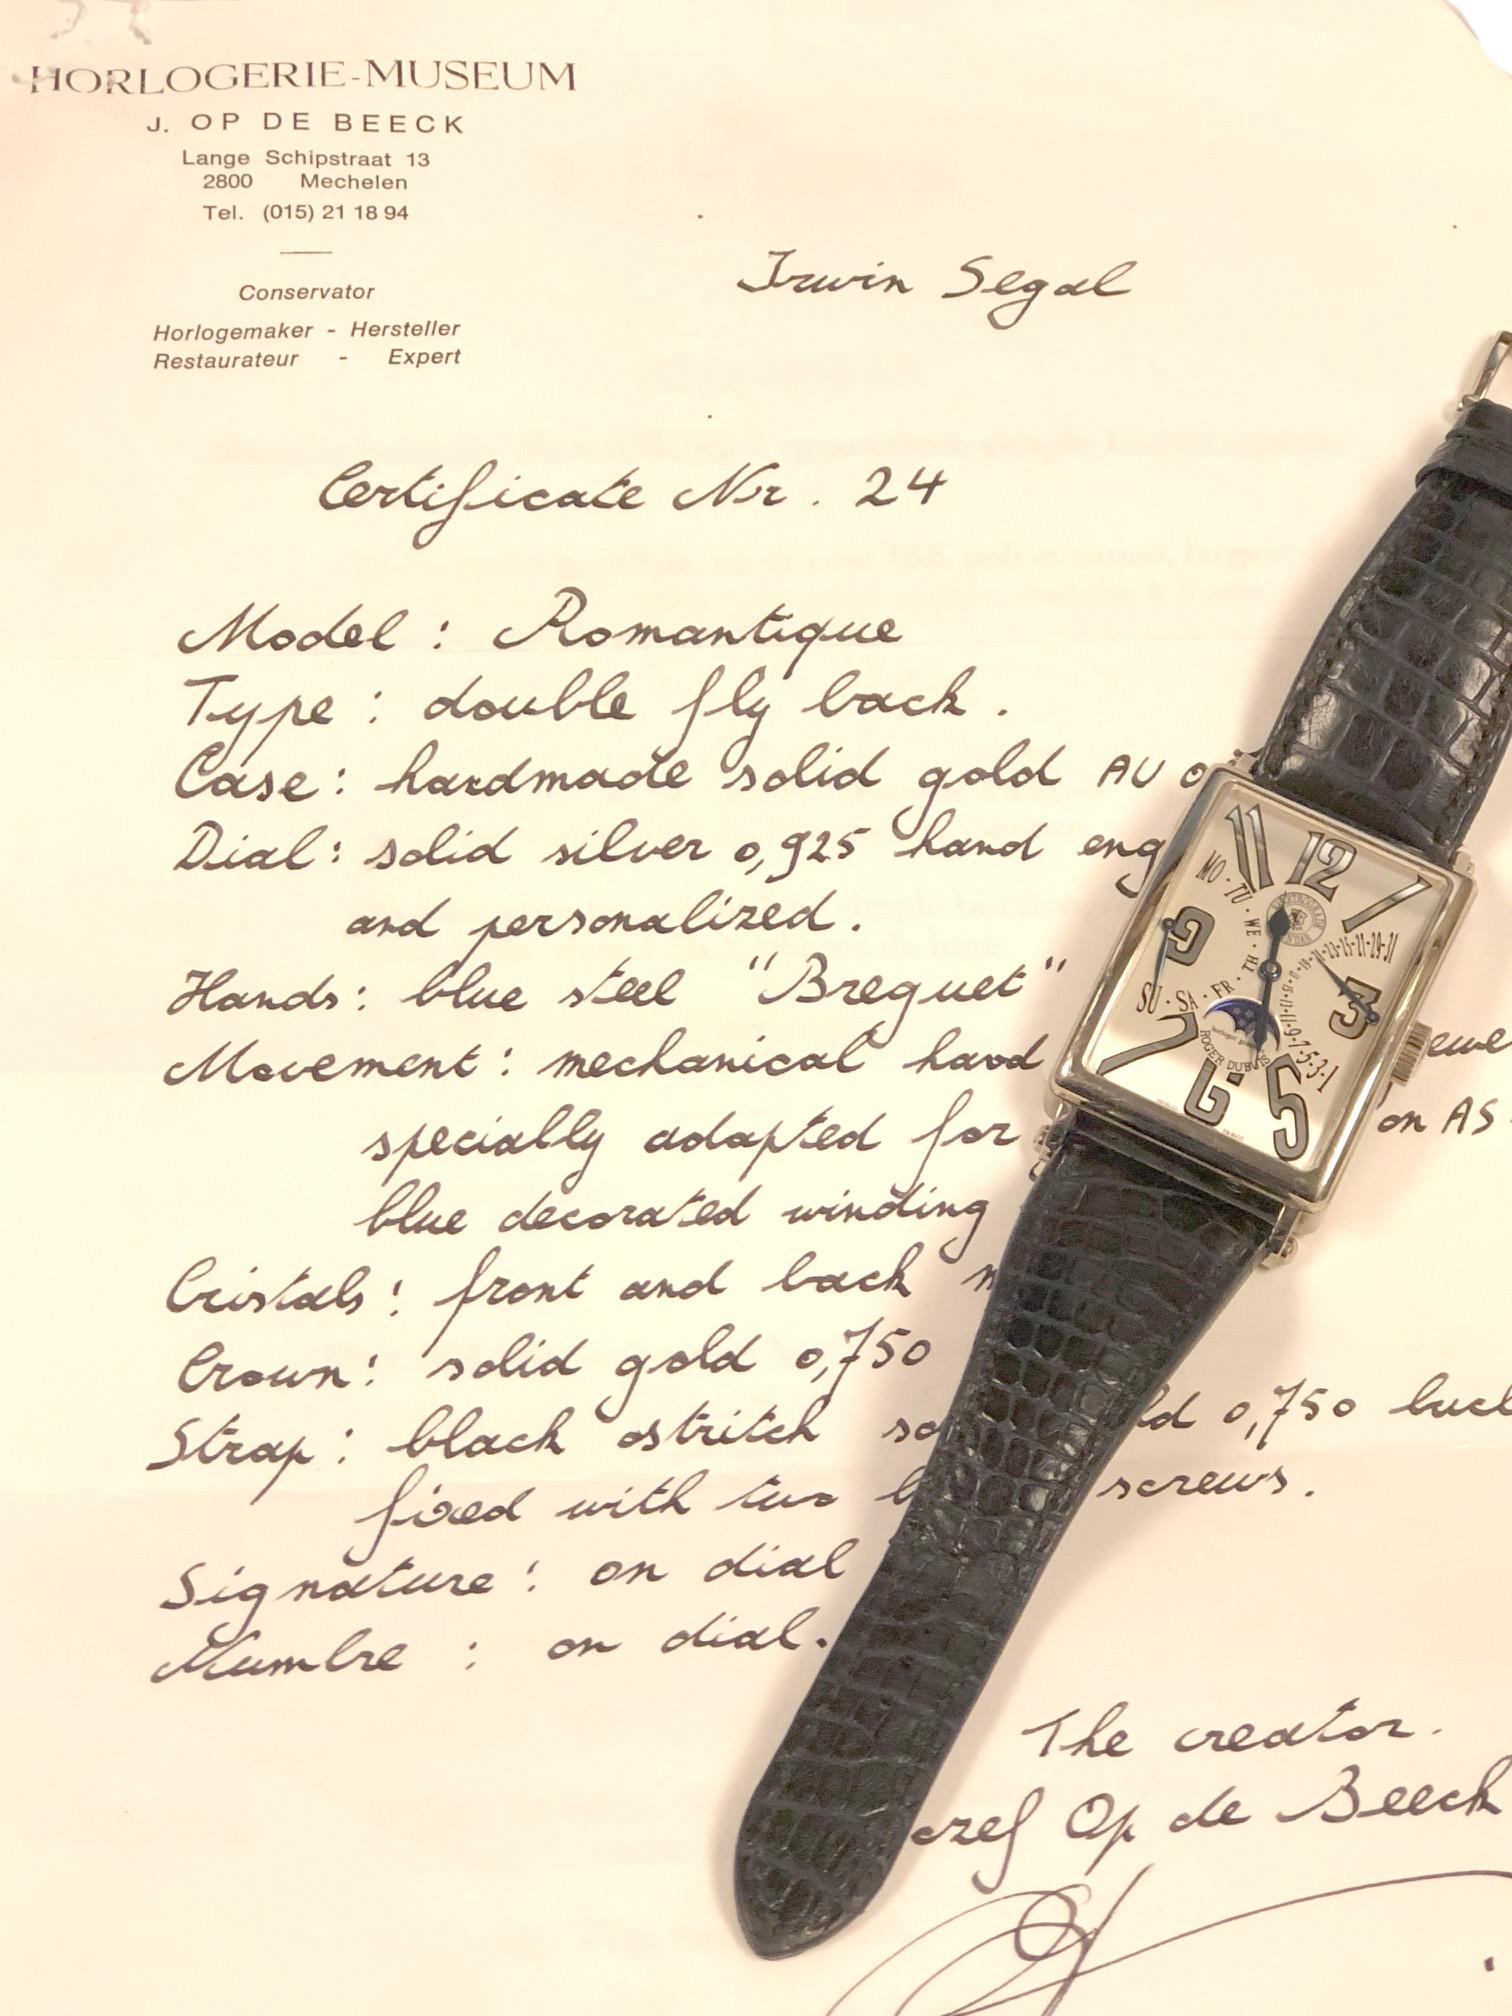 HORLOGERIE-MUSEUM
J. OP DE BEECK
Lange Schipstraat 13
2800 Mechelen
Tel. (015) 21 18 94
Conservator
Horlogemaker - Hersteller
Restaurateur - Expert
Irwin Segal
Certificate Nr. 24
Model : Romantique
Type : double fly back.
Case : hardmade solid gold AU 0
Dial : solid silver 0,925 hand eng
and personalized.
Hands : blue steel "Breguet"
Movement : mechanical hand
specially adapted for on AS
blue decorated winding
Cristals : front and back
Crown : solid gold 0,750
Strap : black ostritch so ld 0,750 buc
fixed with two screws.
Signature : on dial
Numbre : on dial.
The creator.
ozef Op de Beeck
11 12 1
MO · TU · WE · TH · FR · SA · SU
9 3
31
11-9-7-5-3-1
horloger genevois
ROGER DUBUIS
7 6 5